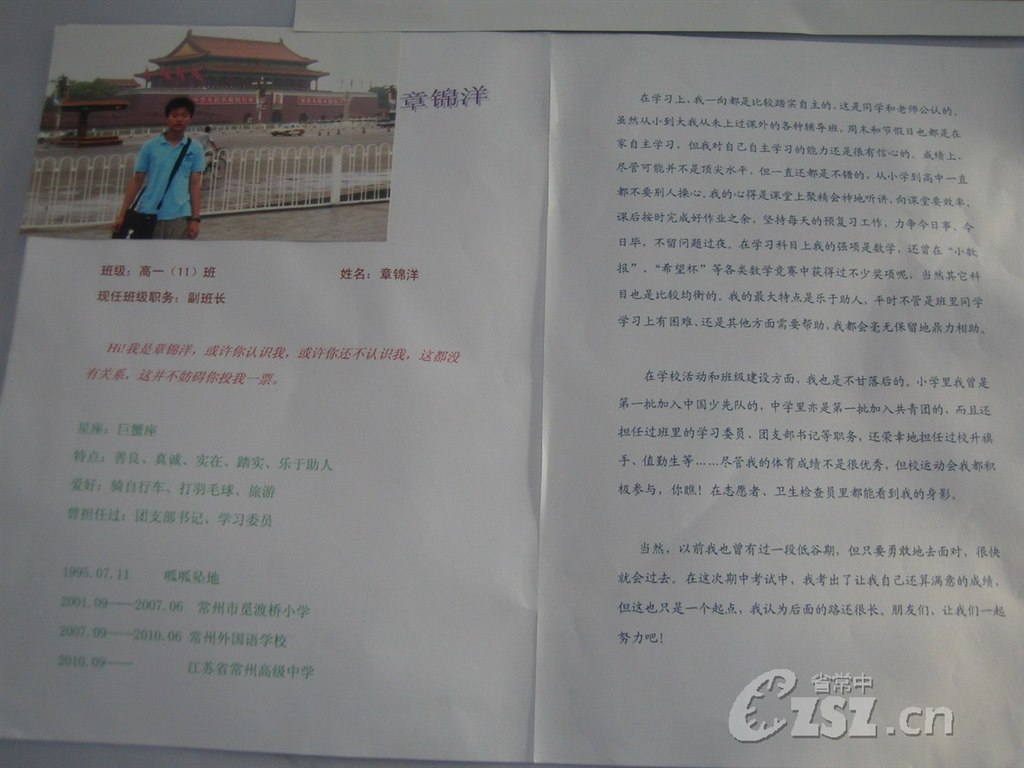 章锦洋
班级：高一（11）班
姓名：章锦洋
现任班级职务：副班长
Hi!我是章锦洋，或许你认识我，或许你还不认识我，这都没
有关系，这并不妨碍你投我一票。
星座：巨蟹座
特点：善良、真诚、实在、踏实、乐于助人
爱好：骑自行车、打羽毛球、旅游
曾担任过：团支部书记、学习委员
1995.07.11 呱呱坠地
2001.09——2007.06 常州市觅渡桥小学
2007.09——2010.06 常州外国语学校
2010.09—— 江苏省常州高级中学
在学习上，我一向都是比较踏实自主的，这是同学和老师公认的。
虽然从小到大我从未上过课外的各种辅导班，周末和节假日也都是在
家自主学习，但我对自己自主学习的能力还是很有信心的。成绩上，
尽管可能并不是顶尖水平，但一直还都是不错的，从小学到高中一直
都不要别人操心。我的心得是课堂上聚精会神地听讲，向课堂要效率，
课后按时完成好作业之余，坚持每天的预复习工作，力争今日事、今
日毕，不留问题过夜。在学习科目上我的强项是数学，还曾在“小数
报”、“希望杯”等各类数学竞赛中获得过不少奖项呢，当然其它科
目也是比较均衡的。我的最大特点是乐于助人，平时不管是班里同学
学习上有困难、还是其他方面需要帮助，我都会毫无保留地鼎力相助。
在学校活动和班级建设方面，我也是不甘落后的。小学里我曾是
第一批加入中国少先队的，中学里亦是第一批加入共青团的，而且还
担任过班里的学习委员、团支部书记等职务，还荣幸地担任过校升旗
手、值勤生等……尽管我的体育成绩不是很优秀，但校运动会我都积
极参与，你瞧！在志愿者、卫生检查员里都能看到我的身影。
当然，以前我也曾有过一段低谷期，但只要勇敢地去面对，很快
就会过去。在这次期中考试中，我考出了让我自己还算满意的成绩，
但这也只是一个起点，我认为后面的路还很长。朋友们，让我们一起
努力吧！
省常中
CZSZ.cn